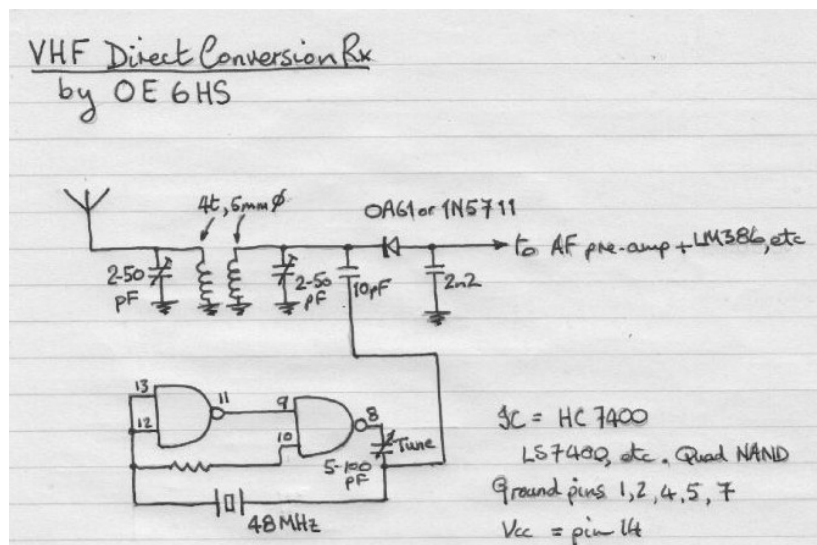 VHF Direct Conversion Rx
by OE6HS
4t, 5mm Ø
OA61 or 1N5711
to AF pre-amp + LM386, etc
2-50
pF
2-50
pF
10pF
2n2
13
11
12
9
8
10
Tune
5-100
pF
48MHz
IC = HC7400
LS7400, etc. Quad NAND
Ground pins 1, 2, 4, 5, 7
Vcc = pin 14